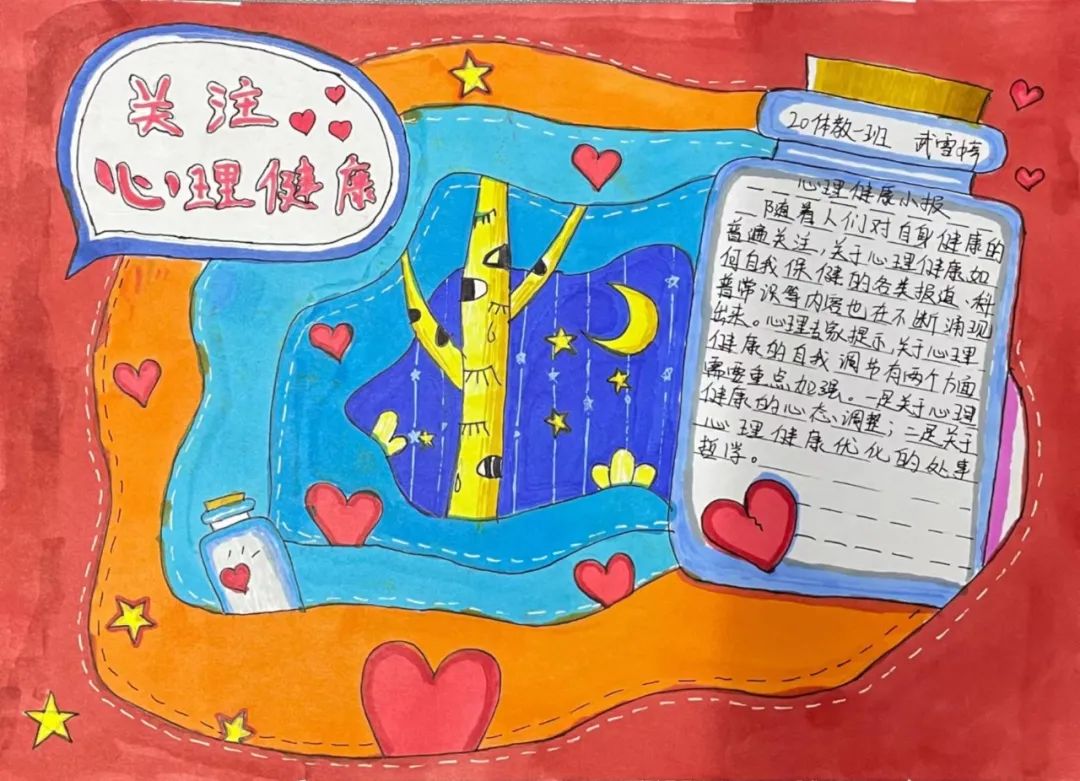 关注
心理健康
20体教一班 武雪婷
心理健康小报
随着人们对自身健康的
普遍关注,关于心理健康如
何自我保健的各类报道、科
普常识等内容也在不断涌现
出来。心理专家提示,关于心理
健康的自我调节有两个方面
需要重点加强。一是关于心理
健康的心态调整;二是关于
心理健康优化的处事
哲学。